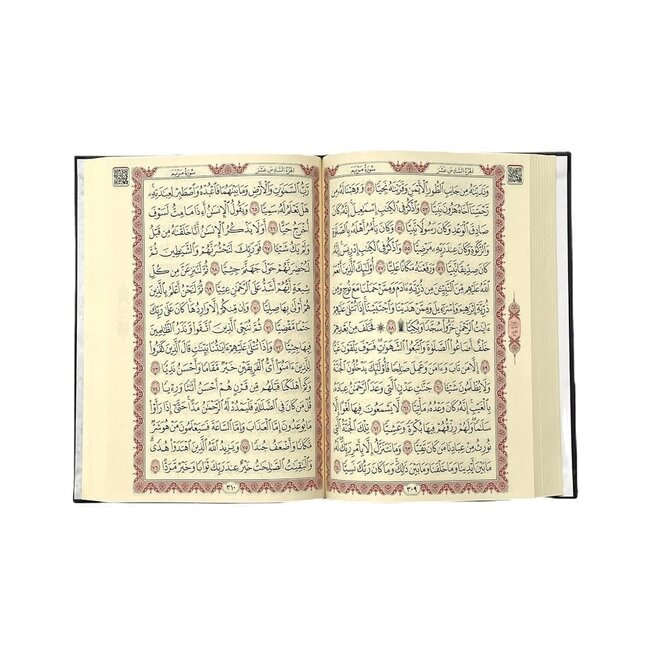 الجزء السادس عشر
سورة مريم
وَنَٰدَيْنَٰهُ مِن جَانِبِ ٱلطُّورِ ٱلْأَيْمَنِ وَقَرَّبْنَٰهُ نَجِيًّا ٥٢ وَوَهَبْنَا لَهُۥ
مِن رَّحْمَتِنَآ أَخَاهُ هَٰرُونَ نَبِيًّا ٥٣ وَٱذْكُرْ فِى ٱلْكِتَٰبِ إِسْمَٰعِيلَ إِنَّهُۥ كَانَ
صَادِقَ ٱلْوَعْدِ وَكَانَ رَسُولًا نَّبِيًّا ٥٤ وَكَانَ يَأْمُرُ أَهْلَهُۥ بِٱلصَّلَوٰةِ
وَٱلزَّكَوٰةِ وَكَانَ عِندَ رَبِّهِۦ مَرْضِيًّا ٥٥ وَٱذْكُرْ فِى ٱلْكِتَٰبِ إِدْرِيسَ إِنَّهُۥ
كَانَ صِدِّيقًا نَّبِيًّا ٥٦ وَرَفَعْنَٰهُ مَكَانًا عَلِيًّا ٥٧ أُو۟لَٰٓئِكَ ٱلَّذِينَ أَنْعَمَ
ٱللَّهُ عَلَيْهِم مِّنَ ٱلنَّبِيِّـۧنَ مِن ذُرِّيَّةِ ءَادَمَ وَمِمَّنْ حَمَلْنَا مَعَ نُوحٍ وَمِن
ذُرِّيَّةِ إِبْرَٰهِيمَ وَإِسْرَٰٓءِيلَ وَمِمَّنْ هَدَيْنَا وَٱجْتَبَيْنَآ إِذَا تُتْلَىٰ عَلَيْهِمْ
ءَايَٰتُ ٱلرَّحْمَٰنِ خَرُّوا۟ سُجَّدًا وَبُكِيًّا ٥٨ فَخَلَفَ مِنۢ بَعْدِهِمْ
خَلْفٌ أَضَاعُوا۟ ٱلصَّلَوٰةَ وَٱتَّبَعُوا۟ ٱلشَّهَوَٰتِ فَسَوْفَ يَلْقَوْنَ غَيًّا
٥٩ إِلَّا مَن تَابَ وَءَامَنَ وَعَمِلَ صَٰلِحًا فَأُو۟لَٰٓئِكَ يَدْخُلُونَ ٱلْجَنَّةَ
وَلَا يُظْلَمُونَ شَيْـًٔا ٦٠ جَنَّٰتِ عَدْنٍ ٱلَّتِى وَعَدَ ٱلرَّحْمَٰنُ عِبَادَهُۥ
بِٱلْغَيْبِ إِنَّهُۥ كَانَ وَعْدُهُۥ مَأْتِيًّا ٦١ لَّا يَسْمَعُونَ فِيهَا لَغْوًا إِلَّا
سَلَٰمًا وَلَهُمْ رِزْقُهُمْ فِيهَا بُكْرَةً وَعَشِيًّا ٦٢ تِلْكَ ٱلْجَنَّةُ ٱلَّتِى
نُورِثُ مِنْ عِبَادِنَا مَن كَانَ تَقِيًّا ٦٣ وَمَا نَتَنَزَّلُ إِلَّا بِأَمْرِ رَبِّكَ لَهُۥ
مَا بَيْنَ أَيْدِينَا وَمَا خَلْفَنَا وَمَا بَيْنَ ذَٰلِكَ وَمَا كَانَ رَبُّكَ نَسِيًّا ٦٤
٣٠٩
الجزء السادس عشر
سورة مريم
رَّبُّ ٱلسَّمَٰوَٰتِ وَٱلْأَرْضِ وَمَا بَيْنَهُمَا فَٱعْبُدْهُ وَٱصْطَبِرْ لِعِبَٰدَتِهِۦ
هَلْ تَعْلَمُ لَهُۥ سَمِيًّا ٦٥ وَيَقُولُ ٱلْإِنسَٰنُ أَءِذَا مَا مِتُّ لَسَوْفَ
أُخْرَجُ حَيًّا ٦٦ أَوَلَا يَذْكُرُ ٱلْإِنسَٰنُ أَنَّا خَلَقْنَٰهُ مِن قَبْلُ
وَلَمْ يَكُ شَيْـًٔا ٦٧ فَوَرَبِّكَ لَنَحْشُرَنَّهُمْ وَٱلشَّيَٰطِينَ ثُمَّ
لَنُحْضِرَنَّهُمْ حَوْلَ جَهَنَّمَ جِثِيًّا ٦٨ ثُمَّ لَنَنزِعَنَّ مِن كُلِّ
شِيعَةٍ أَيُّهُمْ أَشَدُّ عَلَى ٱلرَّحْمَٰنِ عِتِيًّا ٦٩ ثُمَّ لَنَحْنُ أَعْلَمُ بِٱلَّذِينَ
هُمْ أَوْلَىٰ بِهَا صِلِيًّا ٧٠ وَإِن مِّنكُمْ إِلَّا وَارِدُهَا كَانَ عَلَىٰ رَبِّكَ
حَتْمًا مَّقْضِيًّا ٧١ ثُمَّ نُنَجِّى ٱلَّذِينَ ٱتَّقَوا۟ وَّنَذَرُ ٱلظَّٰلِمِينَ
فِيهَا جِثِيًّا ٧٢ وَإِذَا تُتْلَىٰ عَلَيْهِمْ ءَايَٰتُنَا بَيِّنَٰتٍ قَالَ ٱلَّذِينَ كَفَرُوا۟
لِلَّذِينَ ءَامَنُوٓا۟ أَىُّ ٱلْفَرِيقَيْنِ خَيْرٌ مَّقَامًا وَأَحْسَنُ نَدِيًّا ٧٣
وَكَمْ أَهْلَكْنَا قَبْلَهُم مِّن قَرْنٍ هُمْ أَحْسَنُ أَثَٰثًا وَرِءْيًا ٧٤
قُلْ مَن كَانَ فِى ٱلضَّلَٰلَةِ فَلْيَمْدُدْ لَهُ ٱلرَّحْمَٰنُ مَدًّا حَتَّىٰٓ إِذَا رَأَوْا۟
مَا يُوعَدُونَ إِمَّا ٱلْعَذَابَ وَإِمَّا ٱلسَّاعَةَ فَسَيَعْلَمُونَ مَنْ هُوَ شَرٌّ
مَّكَانًا وَأَضْعَفُ جُندًا ٧٥ وَيَزِيدُ ٱللَّهُ ٱلَّذِينَ ٱهْتَدَوْا۟ هُدًى
وَٱلْبَٰقِيَٰتُ ٱلصَّٰلِحَٰتُ خَيْرٌ عِندَ رَبِّكَ ثَوَابًا وَخَيْرٌ مَّرَدًّا ٧٦
٣١٠